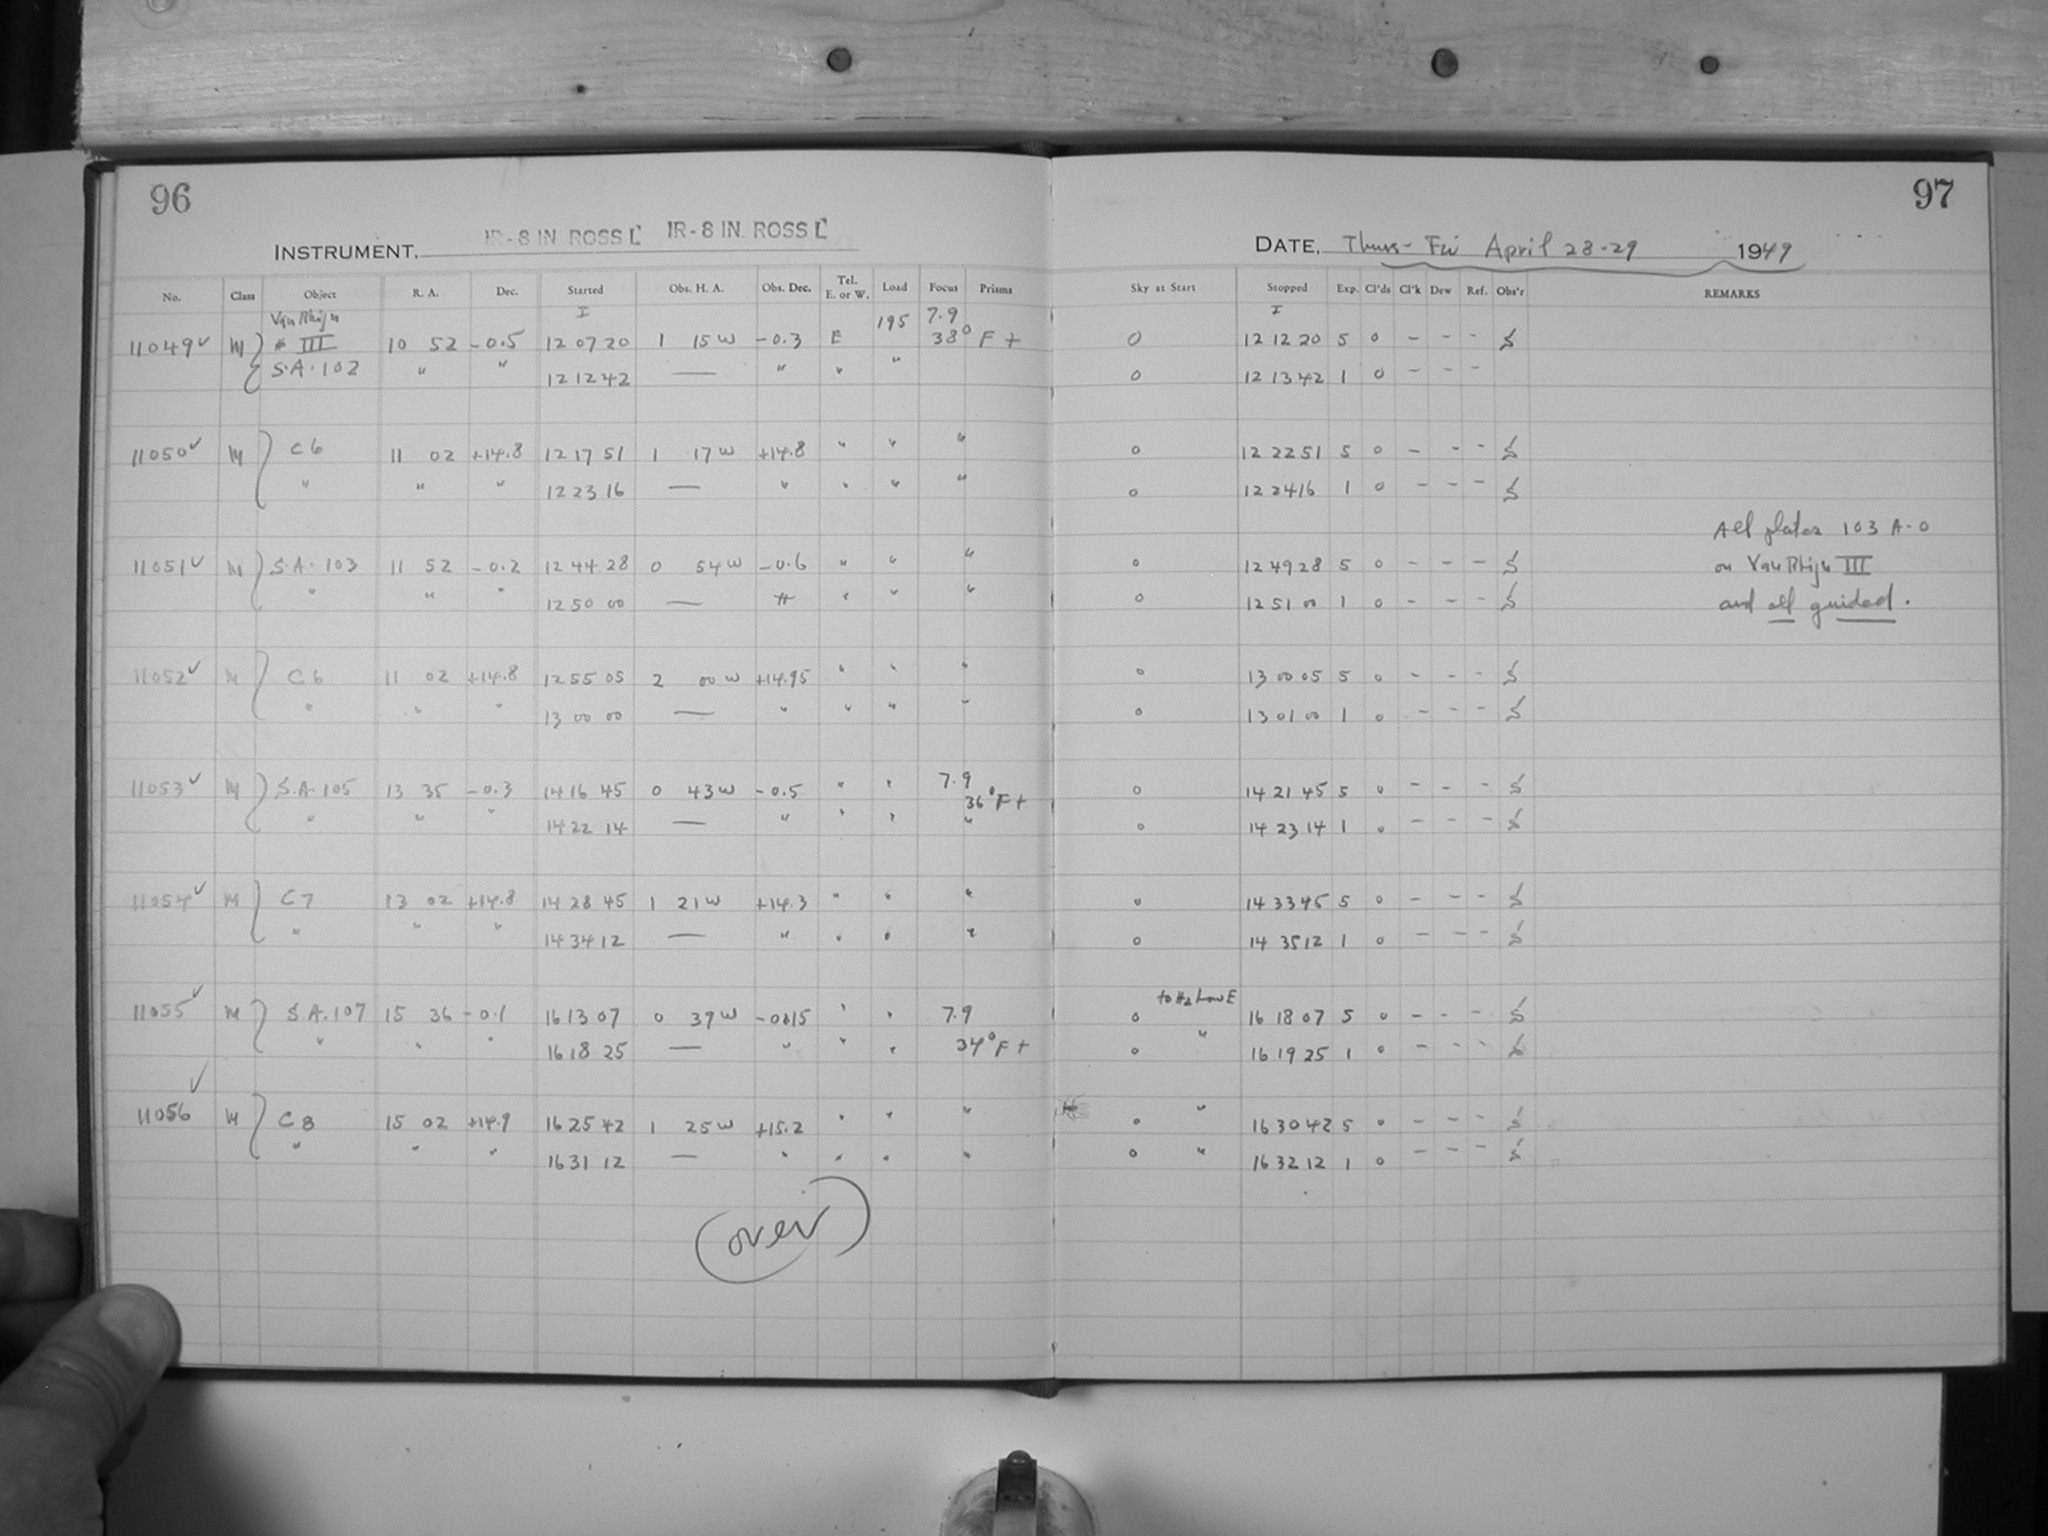 96
97
INSTRUMENT, IR-8 IN. ROSS L IR-8 IN. ROSS L
DATE, Thurs-Fri April 28-29 1949
No. Class Object R. A. Dec. Started Obs. H. A. Obs. Dec. Tel. E. or W. Load Focus Prisms Sky at Start Stopped Exp. Cl'ds Cl'k Dew Ref. Obs'r REMARKS
Van Rhijn I 195 7.9 I
11049✓ M # III 10 52 -0.5 12 07 20 1 15 W -0.3 E 38° F + 0 12 12 20 5 0 - - - S
S.A. 102 " " 12 12 42 — " " " 0 12 13 42 1 0 - - -
11050✓ M C 6 11 02 +14.8 12 17 51 1 17 W +14.8 " " " 0 12 22 51 5 0 - - - S
" " " 12 23 16 — " " " " 0 12 24 16 1 0 - - - S
All plates 103 A-O
11051✓ M S.A. 103 11 52 -0.2 12 44 28 0 54 W -0.6 " " " 0 12 49 28 5 0 - - - S on Van Rhijn III
" " " 12 50 00 — " " " " 0 12 51 00 1 0 - - - S and all guided.
11052✓ M C 6 11 02 +14.8 12 55 05 2 00 W +14.95 " " " 0 13 00 05 5 0 - - - S
" " " 13 00 00 — " " " " 0 13 01 00 1 0 - - - S
11053✓ M S.A. 105 13 35 -0.3 14 16 45 0 43 W -0.5 " " 7.9 0 14 21 45 5 0 - - - S
36° F +
" " " 14 22 14 — " " " " 0 14 23 14 1 0 - - - S
11054✓ M C 7 13 02 +14.8 14 28 45 1 21 W +14.3 " " " 0 14 33 45 5 0 - - - S
" " " 14 34 12 — " " " " 0 14 35 12 1 0 - - - S
11055✓ M S.A. 107 15 36 -0.1 16 13 07 0 39 W " " 7.9 0 16 18 07 5 0 - - - S
" " " 16 18 25 — " " " 34° F + 0 " 16 19 25 1 0 - - - S
11056✓ M C 8 15 02 +14.9 16 25 42 1 25 W +15.2 " " " 0 " 16 30 42 5 0 - - - S
" " " 16 31 12 — " " " " 0 " 16 32 12 1 0 - - - S
(over)